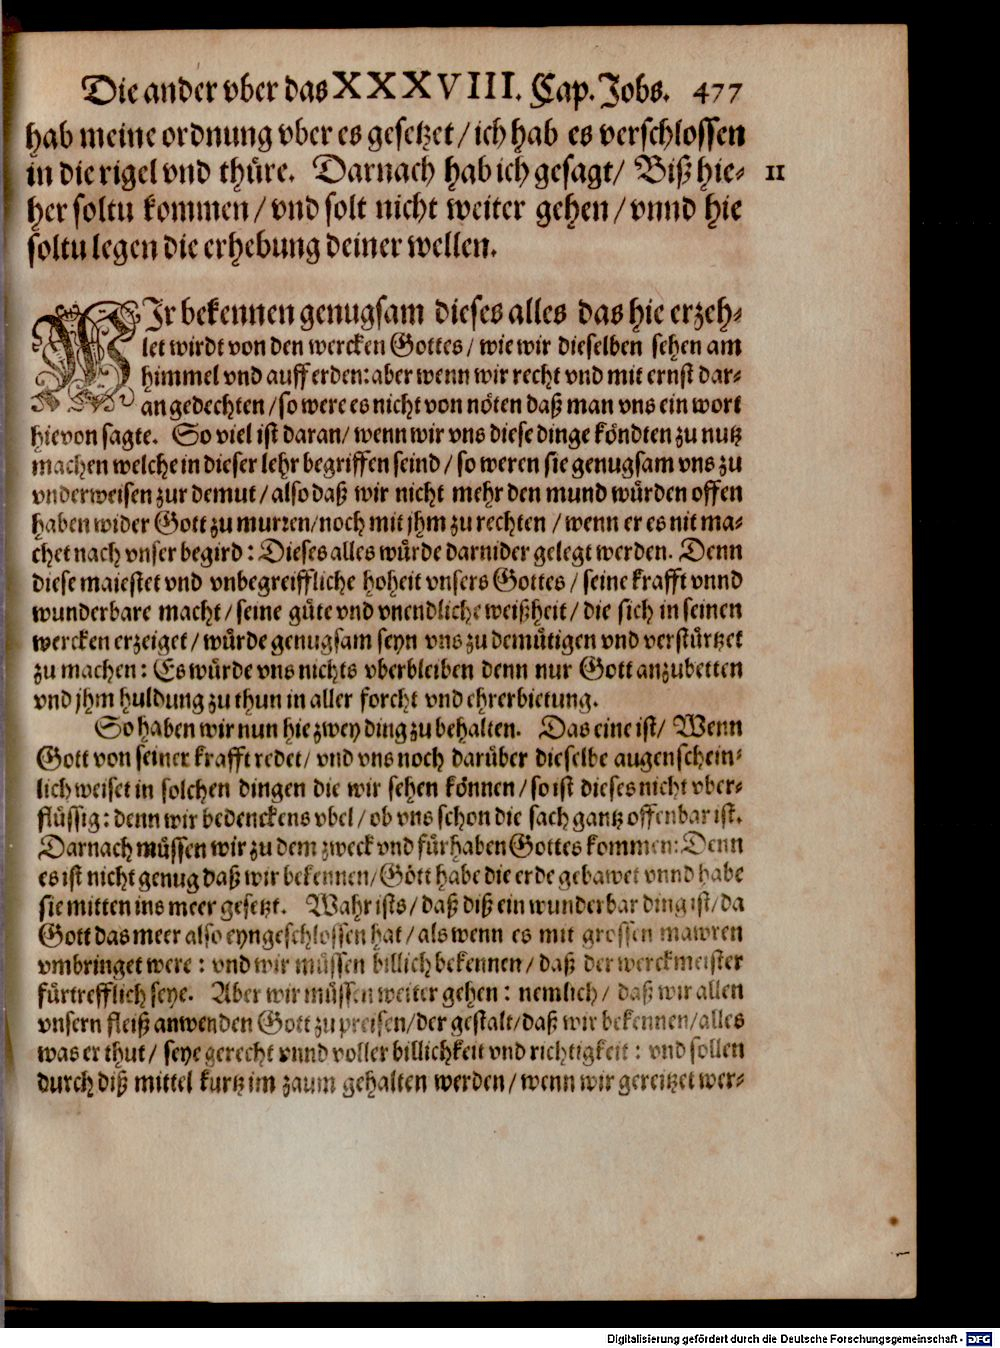 Die ander vber das XXXVIII. Cap. Jobs. 477
hab meine ordnung vber es gesetzet / ich hab es verschlossen
in die rigel vnd thüre. Darnach hab ich gesagt / Biß hie- 11
her soltu kommen / vnd solt nicht weiter gehen / vnnd hie
soltu legen die erhebung deiner wellen.
WIr bekennen genugsam dieses alles das hie erzeh-
let wirdt von den wercken Gottes / wie wir dieselben sehen am
himmel vnd auff erden: aber wenn wir recht vnd mit ernst dar-
an gedechten / so were es nicht von nöten daß man vns ein wort
hievon sagte. So viel ist daran / wenn wir vns diese dinge köndten zu nutz
machen welche in dieser lehr begriffen seind / so weren sie genugsam vns zu
vnderweisen zur demut / also daß wir nicht mehr den mund würden offen
haben wider Gott zu murren / noch mit jhm zu rechten / wenn er es nit ma-
chet nach vnser begird: Dieses alles würde darnider gelegt werden. Denn
diese maiestet vnd vnbegreiffliche hoheit vnsers Gottes / seine krafft vnnd
wunderbare macht / seine güte vnd vnendliche weißheit / die sich in seinen
wercken erzeiget / würde genugsam seyn vns zu demütigen vnd verstürtzet
zu machen: Es würde vns nichts vberbleiben denn nur Gott anzubetten
vnd jhm huldung zu thun in aller forcht vnd ehrerbietung.
So haben wir nun hie zwey ding zu behalten. Das eine ist / Wenn
Gott von seiner krafft redet / vnd vns noch darüber dieselbe augenschein-
lich weiset in solchen dingen die wir sehen können / so ist dieses nicht vber-
flüssig: denn wir bedenckens vbel / ob vns schon die sach gantz offenbar ist.
Darnach müssen wir zu dem zweck vnd fürhaben Gottes kommen: Denn
es ist nicht genug daß wir bekennen / Gott habe die erde gebawet vnnd habe
sie mitten ins meer gesetzt. Wahr ists / daß diß ein wunderbar ding ist / da
Gott das meer also eyngeschlossen hat / als wenn es mit grossen mawren
vmbringet were: vnd wir müssen billich bekennen / daß der werckmeister
fürtrefflich seye. Aber wir müssen weiter gehen: nemlich / daß wir allen
vnsern fleiß anwenden Gott zu preisen / der gestalt / daß wir bekennen / alles
was er thut / seye gerecht vnnd voller billichkeit vnd richtigkeit: vnd sollen
durch diß mittel kurtz im zaum gehalten werden / wenn wir gereitzet wer-
Digitalisierung gefördert durch die Deutsche Forschungsgemeinschaft - DFG